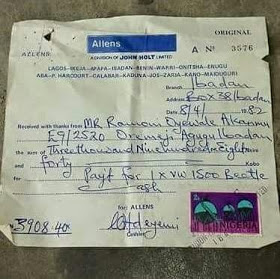 ALLENS:
Allens
ORIGINAL
A DIVISION OF JOHN HOLT LIMITED
A No 3576
LAGOS-IKEJA-APAPA-IBADAN-BENIN-WARRI-ONITSHA-ENUGU
ABA-P. HARCOURT-CALABAR-KADUNA-JOS-ZARIA-KANO-MAIDUGURI
Branch Ibadan
Address Box 38 Ibadan
8/4/ 1982
Received with thanks from MR Ramoni Oyewale Akanni
E9/2520 Oremeji Agugu Ibadan
the sum of Three thousand Nine hundred Eight Naira
forty Kobo
Payt for 1 x VW 1500 Beetle
Cash
for: ALLENS
₦3908.40k
Cashier
NIGERIA